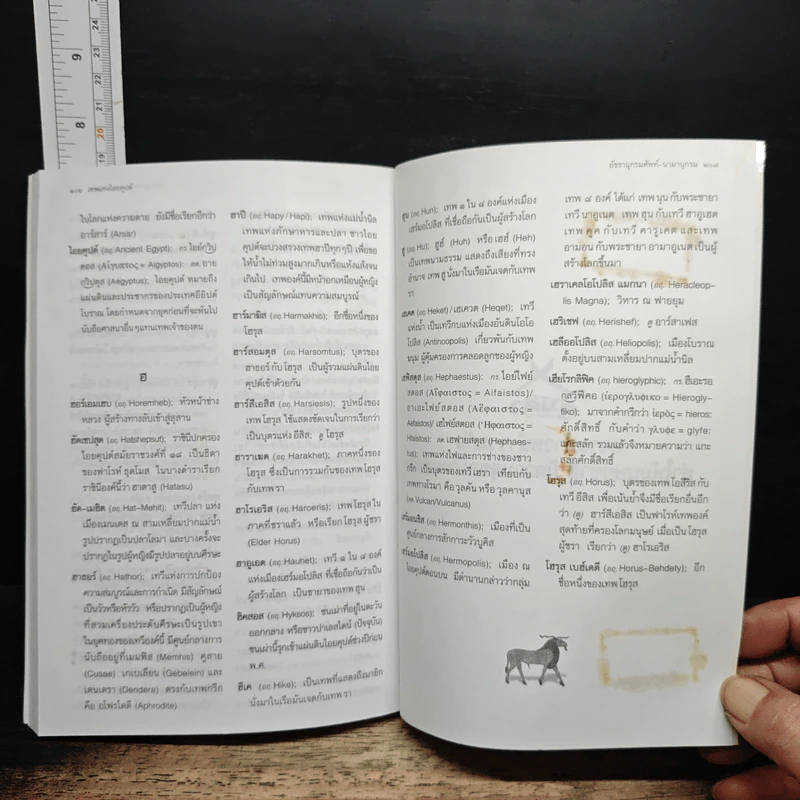 ๑๐๖ เทพแห่งไอยคุปต์
ในโลกแห่งความตาย ยังมีชื่อเรียกอีกว่า
อาร์สาร์ (Arsar)
ไอยคุปต์ (อถ. Ancient Egypt); กร. ไอย์กุวิป
ตอส (Αἴγυπτος = Aigyptos); ลต. อาย
กุวิปตุส (Aegyptus); ไอยคุปต์ หมายถึง
แผ่นดินและประชากรของประเทศอียิปต์
โบราณ โดยกำหนดจากยุคก่อนที่จะหันไป
นับถือศาสนาอื่นๆแทนเทพเจ้าของตน
ฮ
ฮอร์เอมเฮบ (อถ. Horemheb); หัวหน้าช่าง
หลวง ผู้สร้างทางลับเข้าสู่สุสาน
ฮัตเชปสุต (อถ. Hatshepsut); ราชินีปกครอง
ไอยคุปต์สมัยราชวงศ์ที่ ๑๘ เป็นธิดา
ของฟาโรห์ ธุตโมส ในบางตำราเรียก
ราชินีองค์นี้ว่า ฮาตาสู (Hatasu)
ฮัต-เมฮิต (อถ. Hat-Mehit); ทวีปลา แห่ง
เมืองเมนเดส ณ สามเหลี่ยมปากแม่น้ำ
รูปปรากฏเป็นปลาโลมา และบางครั้งจะ
ปรากฏในรูปผู้หญิงมีรูปปลาอยู่บนศีรษะ
ฮาธอร์ (อถ. Hathor); เทวีแห่งการปกป้อง
ความสมบูรณ์และการกำเนิด มีสัญลักษณ์
เป็นวัวหรือหัววัว หรือปรากฏเป็นผู้หญิง
ที่สวมเครื่องประดับศีรษะเป็นรูปเขา
ในยุคทองของเทวีองค์นี้ มีศูนย์กลางการ
นับถืออยู่ที่เมมฟิส (Memhis) คูสาย
(Cusae) เกเบเลียน (Gebelein) และ
เดนเดรา (Dendera) ตรงกับเทพกรีก
คือ อโฟรไดตี (Aphrodite)
ฮาปี (อถ. Hapy / Hapi); เทพแห่งแม่น้ำนิล
เทพแห่งภักษาหารและปลา ชาวไอย
คุปต์จะบวงสรวงเทพฮาปีทุกๆปี เพื่อขอ
ให้น้ำไม่ท่วมสูงมากเกินหรือแห้งแล้งจน
เกินไป เทพองค์นี้มีหน้าอกเหมือนผู้หญิง
เป็นสัญลักษณ์แทนความสมบูรณ์
ฮาร์มาฆิส (อถ. Harmakhis); อีกชื่อหนึ่งของ
โฮรุส
ฮาร์สอมตุส (อถ. Harsomtus); บุตรของ
ฮาธอร์ กับ โฮรุส เป็นผู้รวมแผ่นดินไอย
คุปต์เข้าด้วยกัน
ฮาร์สีเอสิส (อถ. Harsiesis); รูปหนึ่งของ
เทพ โฮรุส ใช้แสดงชัดเจนในการเรียกว่า
เป็นบุตรแห่ง อีสิส; ดู โฮรุส
ฮาราเฆต (อถ. Harakhet); ภาคหนึ่งของ
โฮรุส ซึ่งเป็นการรวมกันของเทพ โฮรุส
กับเทพ รา
ฮาโรเอริส (อถ. Haroeris); เทพ โฮรุส ใน
ภาคที่ชราแล้ว หรือเรียก โฮรุส ผู้ชรา
(Elder Horus)
ฮาอูเฮต (อถ. Hauhet); เทวี ๑ ใน ๘ องค์
แห่งเมืองเฮร์มอโปลิส ที่เชื่อถือกันว่าเป็น
ผู้สร้างโลก เป็นชายาของเทพ ฮุน
ฮิคสอส (อถ. Hyksos); ชนเผ่าที่อยู่ในตะวัน
ออกกลาง หรือชาวปาเลสไตน์ (ปัจจุบัน)
ชนเผ่านี้รุกเข้าแผ่นดินไอยคุปต์ช่วงปีก่อน
พ.ศ.
ฮีเค (อถ. Hike); เป็นเทพที่แสดงถึงมายิก
นั่งมาในเรือมันเจตกับเทพ รา
อัชรานุกรมศัพท์-นามานุกรม ๒๐๗
ฮุน (อถ. Hun); เทพ ๑ ใน ๘ องค์แห่งเมือง
เฮร์มอโปลิส ที่เชื่อถือกันเป็นผู้สร้างโลก
ฮู (อถ. Hu); ฮูฮ์ (Huh) หรือ เฮฮ์ (Heh)
เป็นเทพนามธรรม แสดงถึงเสียงที่ทรง
อำนาจ เทพ ฮู นั่งมาในเรือมันเจตกับเทพ
รา
เฮเคต (อถ. Heket) / เฮเควต (Heqet); เทวี
แห่งน้ำ เป็นเทวีกบแห่งเมืองอันตินโอโอ
โปลิส (Antinoopolis) เกี่ยวพันกับเทพ
ฆนุม ผู้คุ้มครองการคลอดลูกของผู้หญิง
เฮฟัสตุส (อถ. Hephaestus); กร. ไอย์ไฟย์
สตอส (Αἴφαιστος = Aifaistos)/
อาเอะไฟย์สตอส (Αἔφαιστος =
Aefaistos)/ เฮไฟย์สตอส (Ἥφαιστος =
Hfaistos); ลต. เฮฟายสตุส (Hephaes-
tus); เทพแห่งไฟและการช่างของชาว
กรีก เป็นบุตรของเทวี เฮรา เทียบกับ
เทพทางโรมา คือ วุลคัน หรือ วุลคานุส
(ลต. Vulcan/Vulcanus)
เฮร์มอนธิส (อถ. Hermonthis); เมืองที่เป็น
ศูนย์กลางการสักการะวัวบูคิส
เฮร์มอโปลิส (อถ. Hermopolis); เมือง ณ
ไอยคุปต์ตอนบน มีตำนานกล่าวว่ากลุ่ม
เทพ ๘ องค์ ได้แก่ เทพ นุน กับพระชายา
เทวี นาอูเนต เทพ ฮุน กับเทวี ฮาอูเฮต
เทพ คุค กับเทวี คารูเคต และเทพ
อามอน กับพระชายา อามาอูเนต เป็นผู้
สร้างโลกขึ้นมา
เฮราเคลโอโปลิส แมกนา (อถ. Heracleop-
olis Magna); วิหาร ณ ฟายยุม
เฮริเชฟ (อถ. Herishef); ดู อาร์สาเฟส
เฮลีออโปลิส (อถ. Heliopolis); เมืองโบราณ
ตั้งอยู่บนสามเหลี่ยมปากแม่น้ำนิล
เฮียโรกลิฟิค (อถ. hieroglyphic); กร. ฮีเอะรอ
กลวีฟิคอ (ἱερογλυφικο = Hierogly-
fiko); มาจากคำกรีกว่า ἱερὸς = hieros:
ศักดิ์สิทธิ์ กับคำว่า γλυφε = glyfe:
แกะสลัก รวมแล้วจึงหมายความว่า แกะ
สลักศักดิ์สิทธิ์
โฮรุส (อถ. Horus); บุตรของเทพ โอสิริส กับ
เทวี อีสิส เพื่อเน้นย้ำจึงมีชื่อเรียกอื่นอีก
ว่า (ดู) ฮาร์สีเอสิส เป็นฟาโรห์เทพองค์
สุดท้ายที่ครองโลกมนุษย์ เมื่อเป็น โฮรุส
ผู้ชรา เรียกว่า (ดู) ฮาโรเอริส
โฮรุส เบฮ์เดตี (อถ. Horus-Behdety); อีก
ชื่อหนึ่งของเทพ โฮรุส
9
8
24
23
22
21
20
19